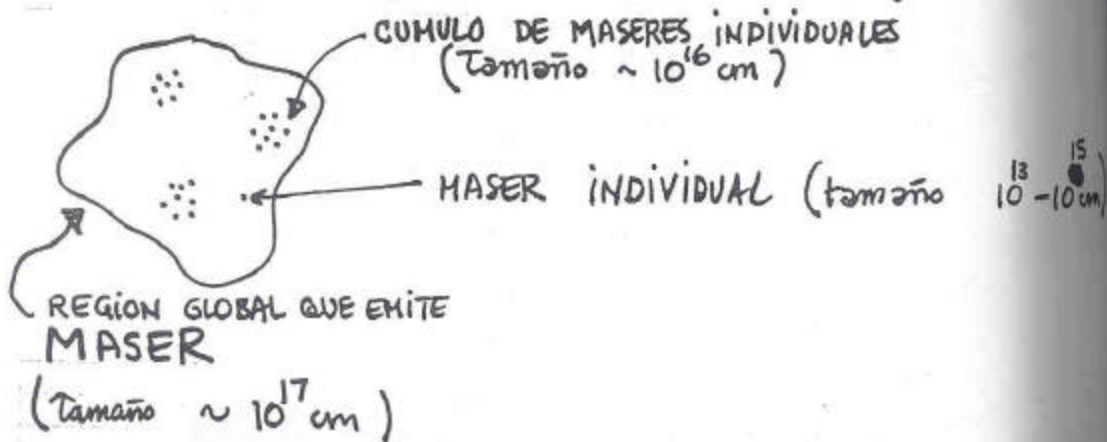 CUMULO DE MASERES INDIVIDUALES
(Tamaño ~ 10^16 cm)
MASER INDIVIDUAL (tamaño 10^13 - 10^15 cm)
REGION GLOBAL QUE EMITE
MASER
(Tamaño ~ 10^17 cm)